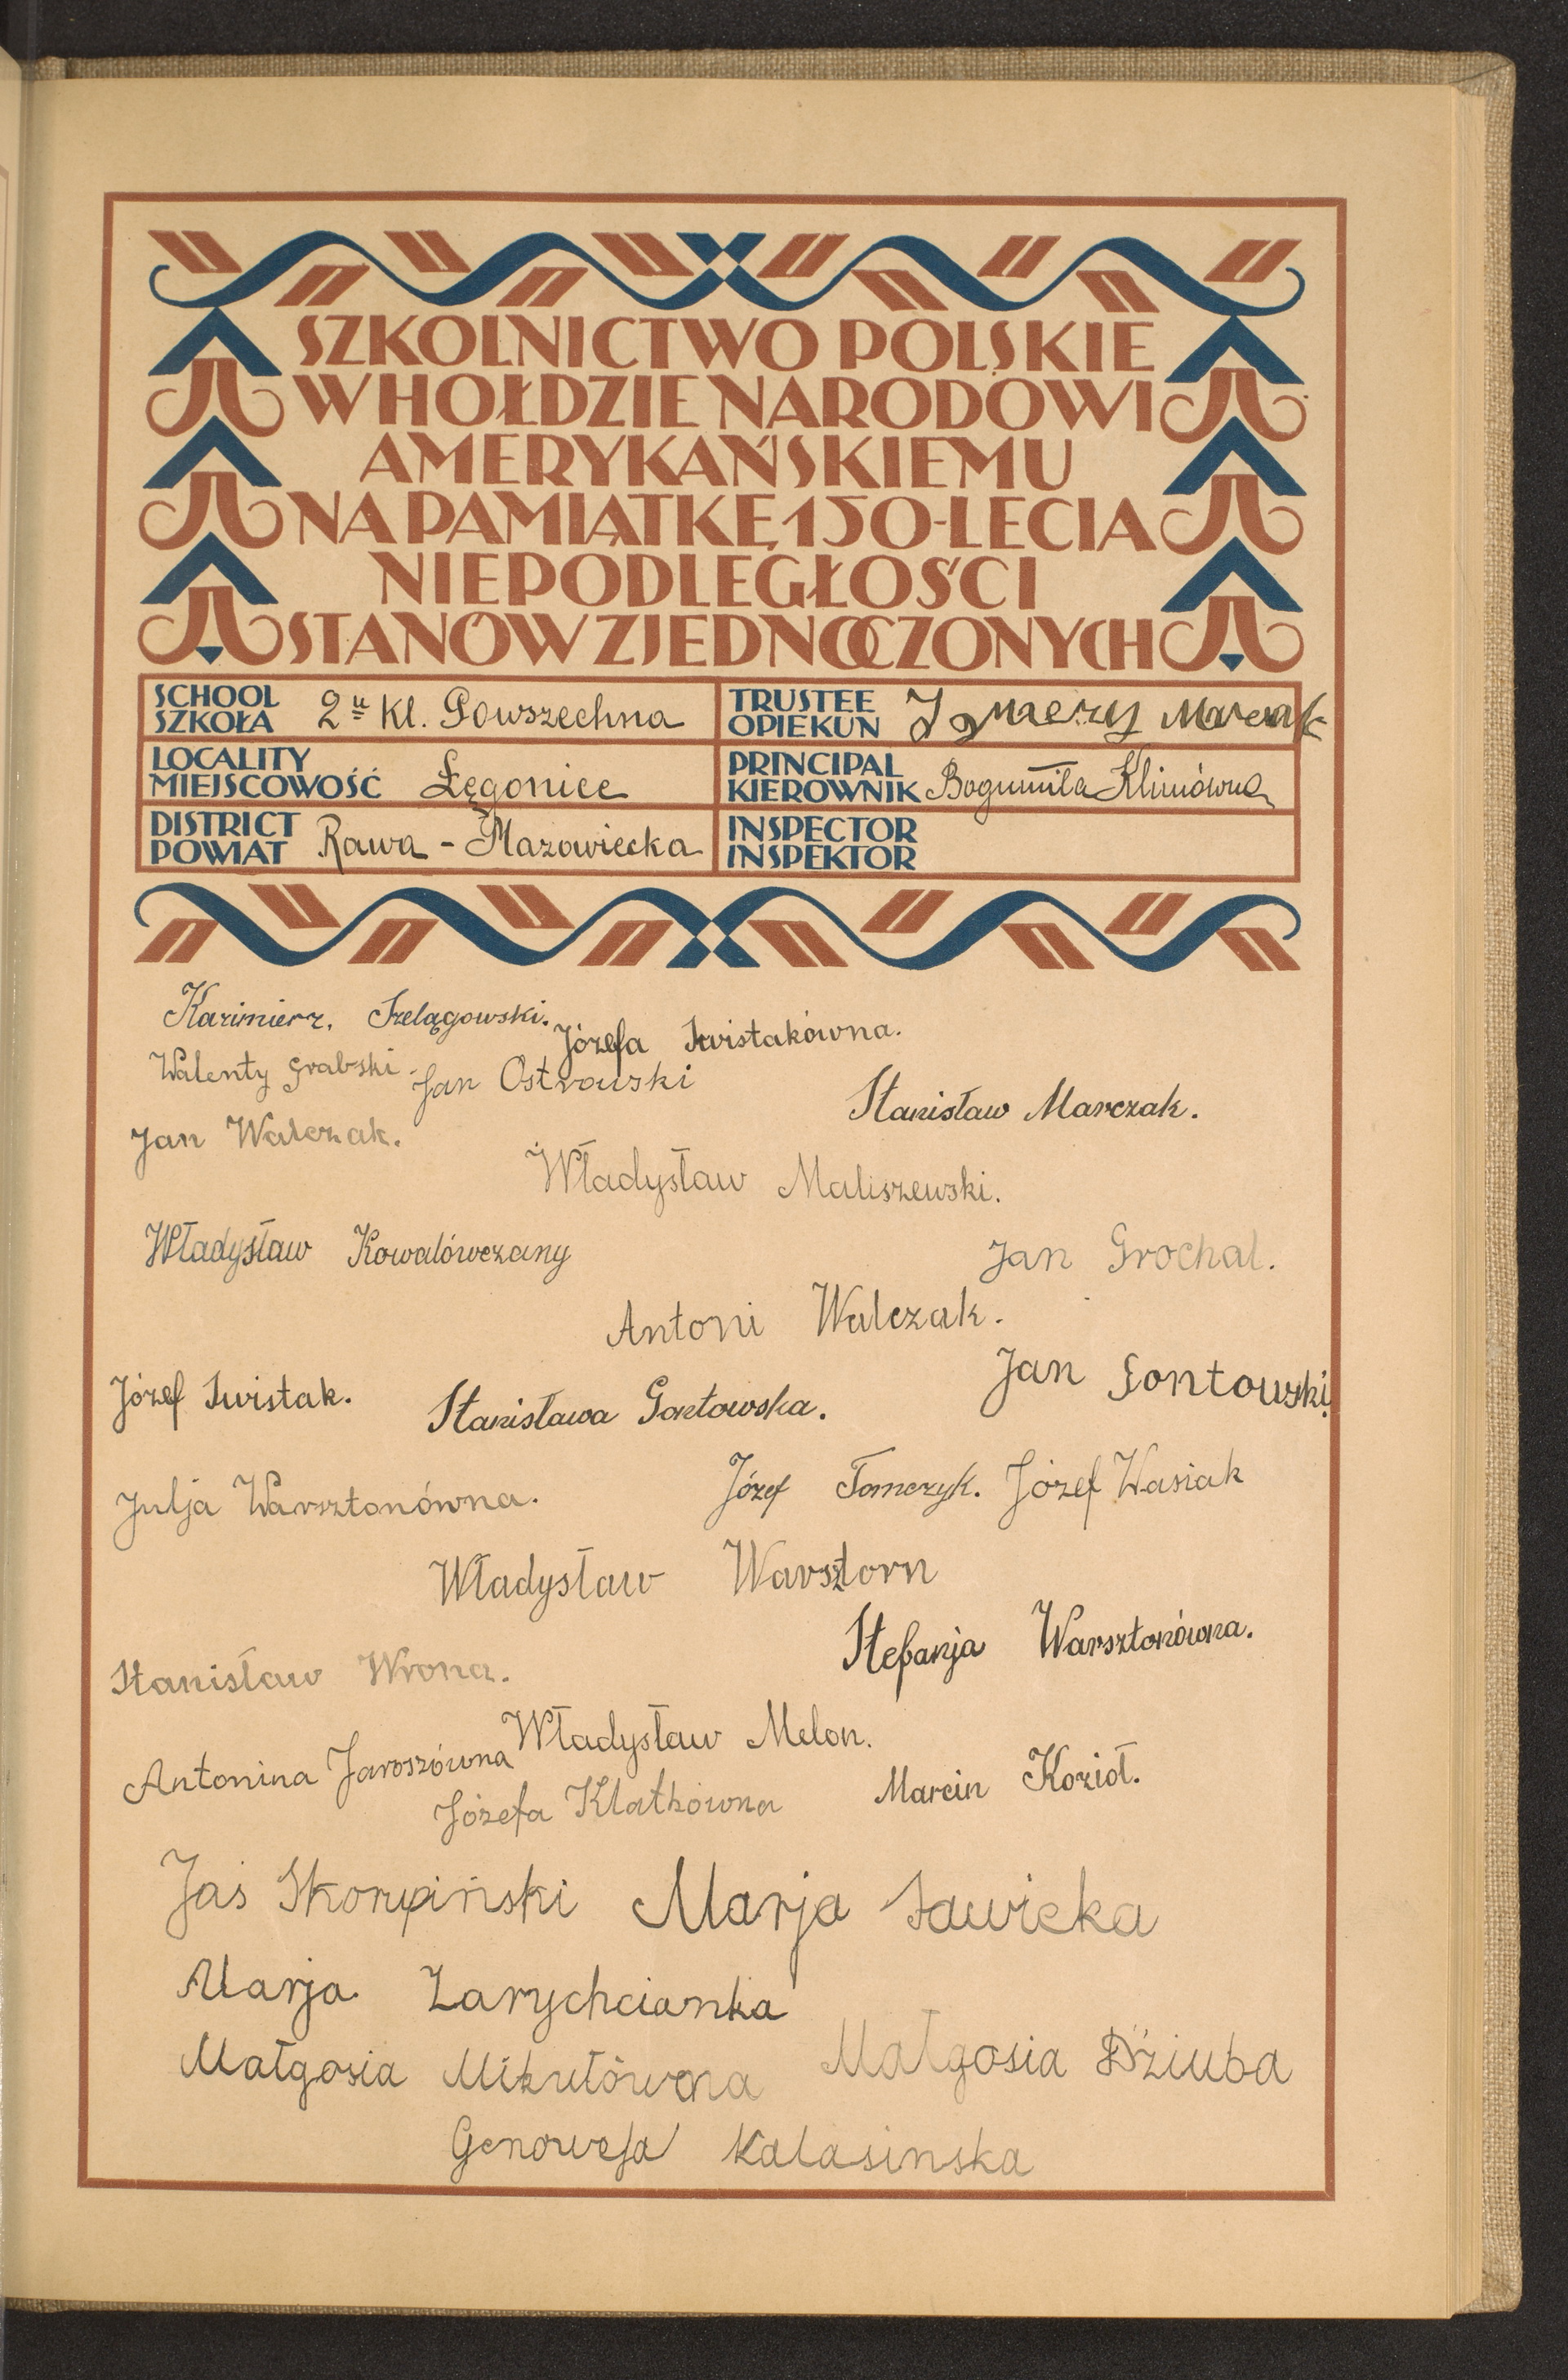 SZKOLNICTWO POLSKIE
W HOŁDZIE NARODOWI
AMERYKAŃSKIEMU
NA PAMIĄTKĘ 150-LECIA
NIEPODLEGŁOŚCI
STANÓW ZJEDNOCZONYCH
SCHOOL
SZKOŁA 2u Kl. Powszechna
TRUSTEE
OPIEKUN
LOCALITY
MIEJSCOWOŚĆ Łęgonice
PRINCIPAL
KIEROWNIK Bogumiła Klimówna
DISTRICT
POWIAT Rawa - Mazowiecka
INSPECTOR
INSPEKTOR
Kazimierz. Szelągowski.
Józefa Swistakówna.
Walenty Grabski.
Jan Ostrowski
Stanisław Marczak.
Jan Walczak.
Władysław Maliszewski.
Władysław Kowalówczany
Jan Grochal.
Antoni Walczak.
Jan Gontowski.
Józef Swistak.
Stanisława Gontowska.
Józef Tomczyk.
Józef Wasiak
Julja Warsztonówna.
Władysław Warsztorn
Stefanja Warsztonówna.
Stanisław Wrona.
Władysław Melon.
Antonina Jaroszówna
Marcin Kozioł.
Józefa Klatkówna
Jaś Skorupiński
Marja Sawicka
Marja Zarychcianka
Małgosia Mikułówna
Małgosia Dziuba
Genowefa Kalasinska